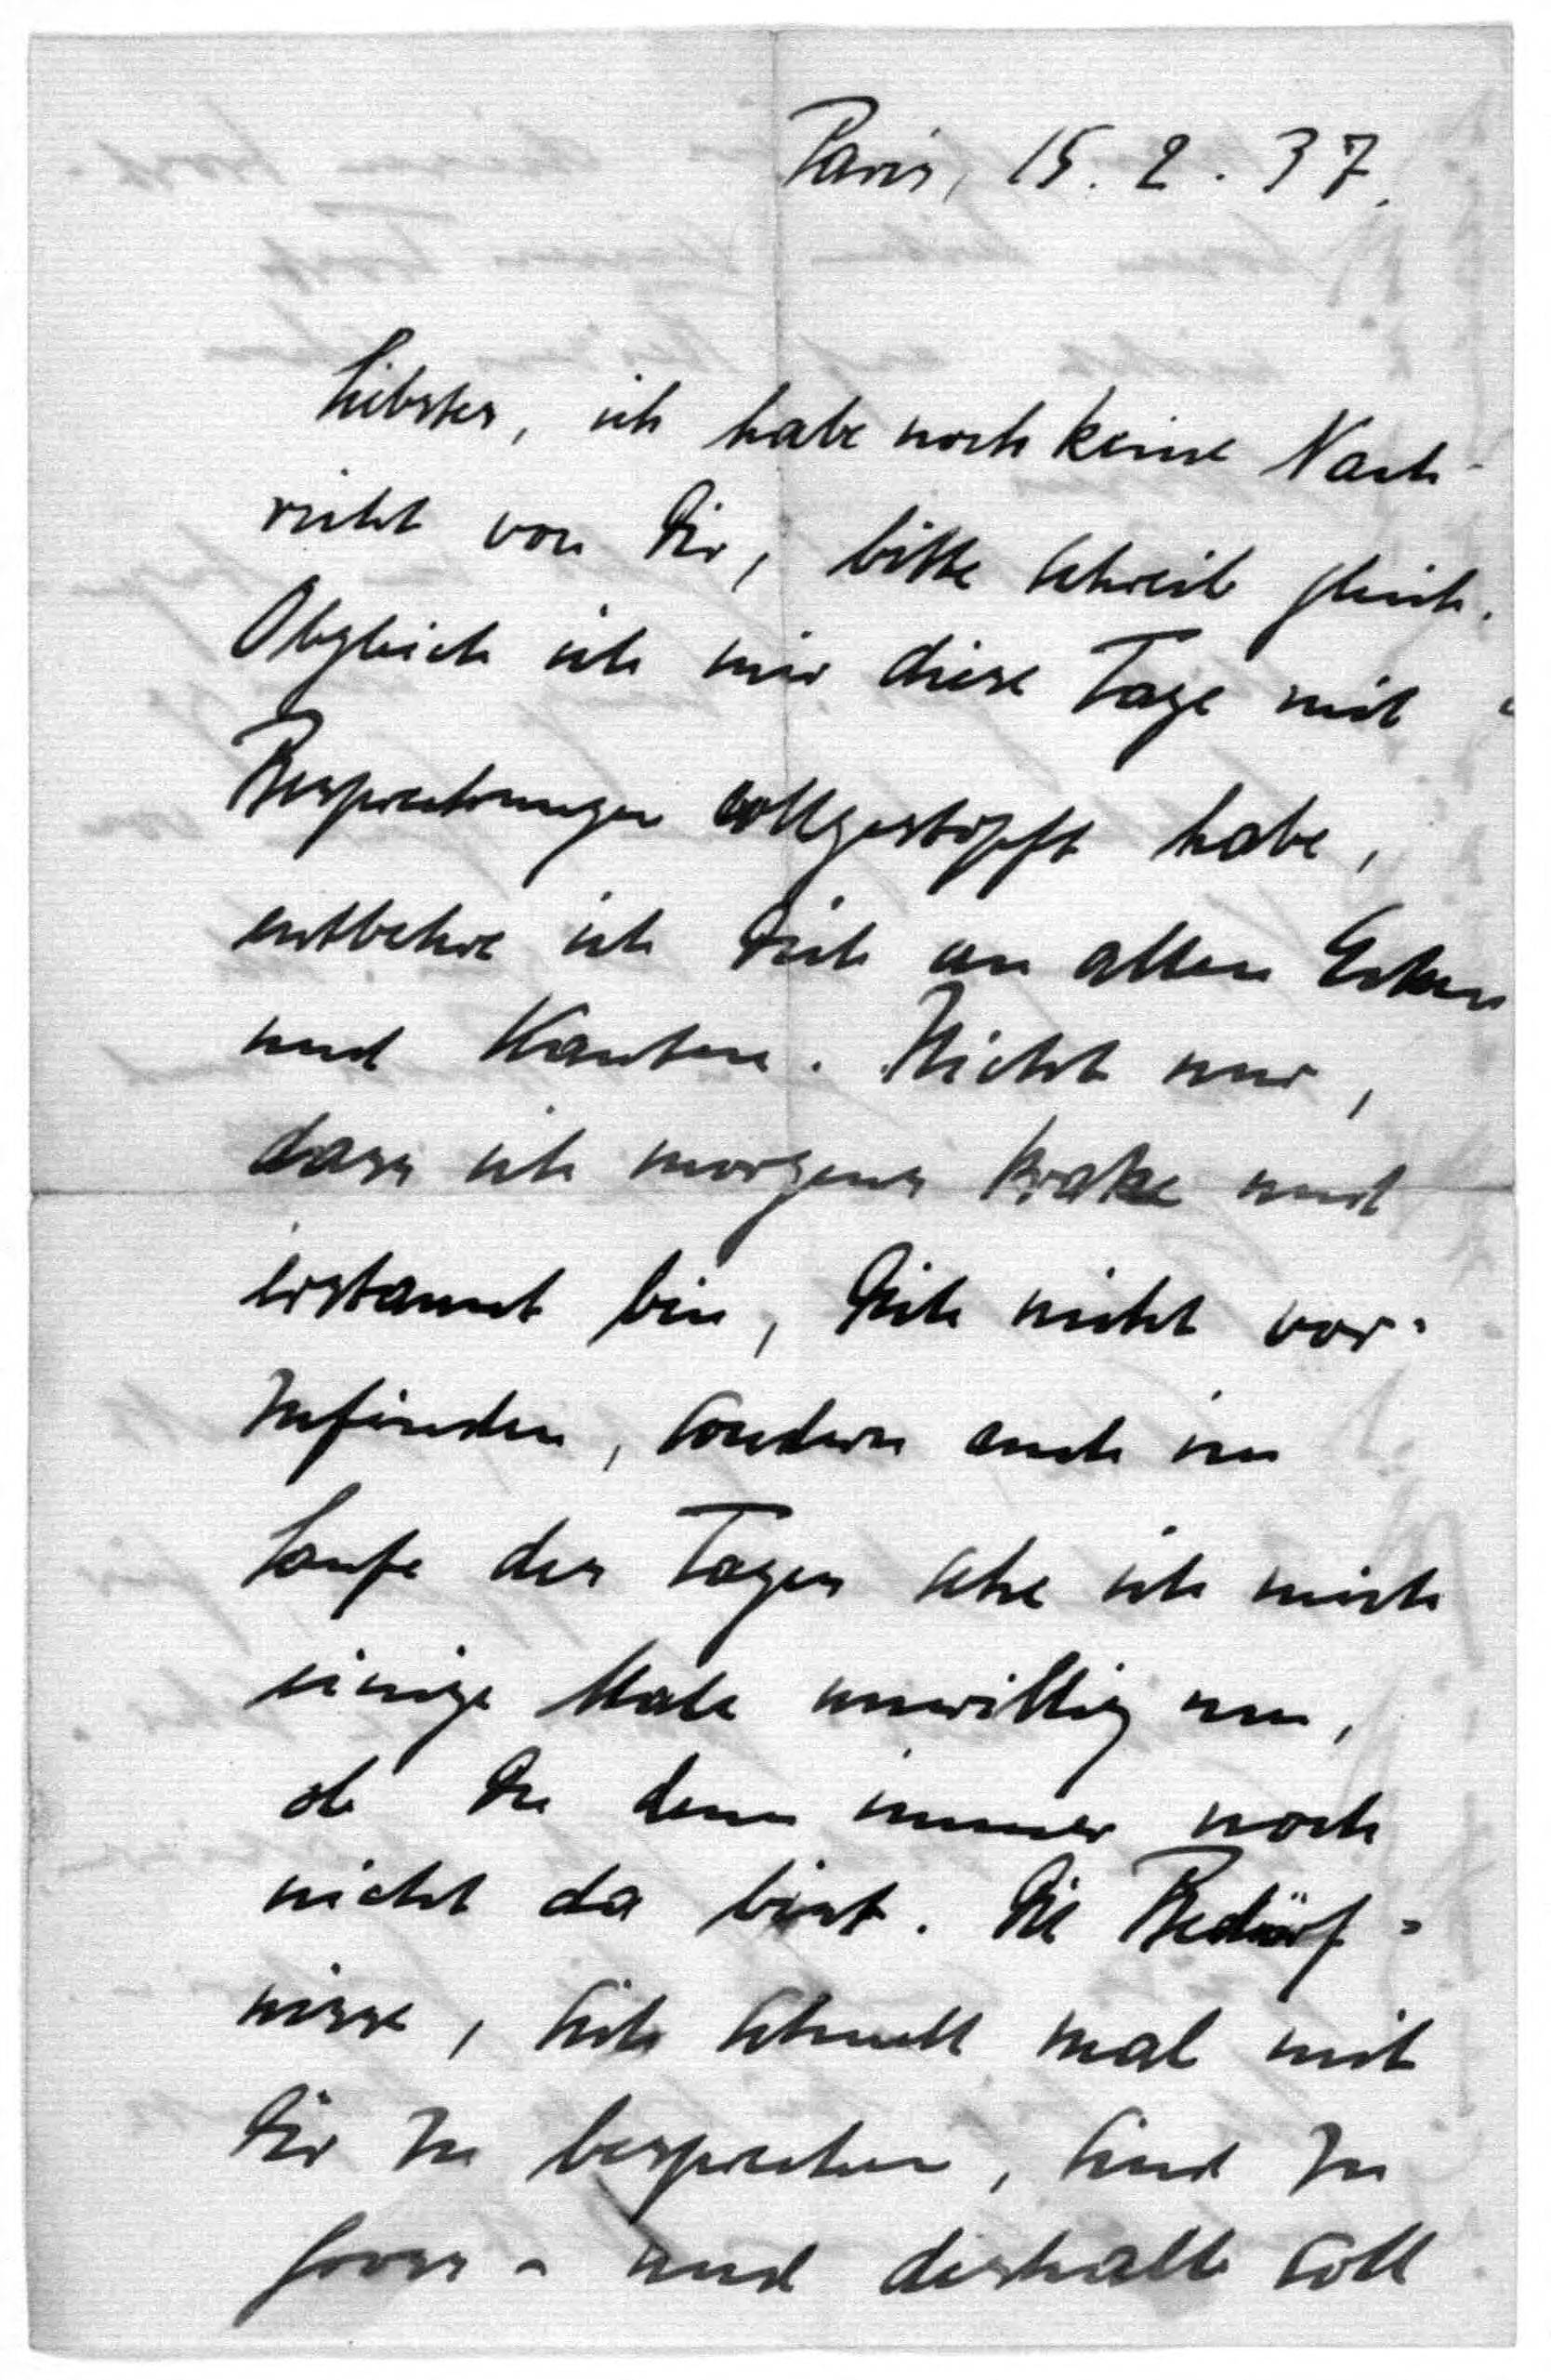 Paris, 15. 2. 37.
Liebster, ich habe noch keine Nach-
richt von Dir, bitte schreib gleich.
Obgleich ich mir diese Tage mit
Besprechungen vollgestopft habe,
entbehre ich Dich an allen Ecken
und Kanten. Nicht nur,
dass ich morgens krake und
erstaunt bin, Dich nicht vor-
zufinden, sondern auch im
Laufe des Tages sehe ich mich
einige Male unwillig um,
ob Du denn immer noch
nicht da bist. Die Bedürf-
nisse, sich schnell mal mit
Dir zu besprechen, sind zu
gross - und deshalb soll